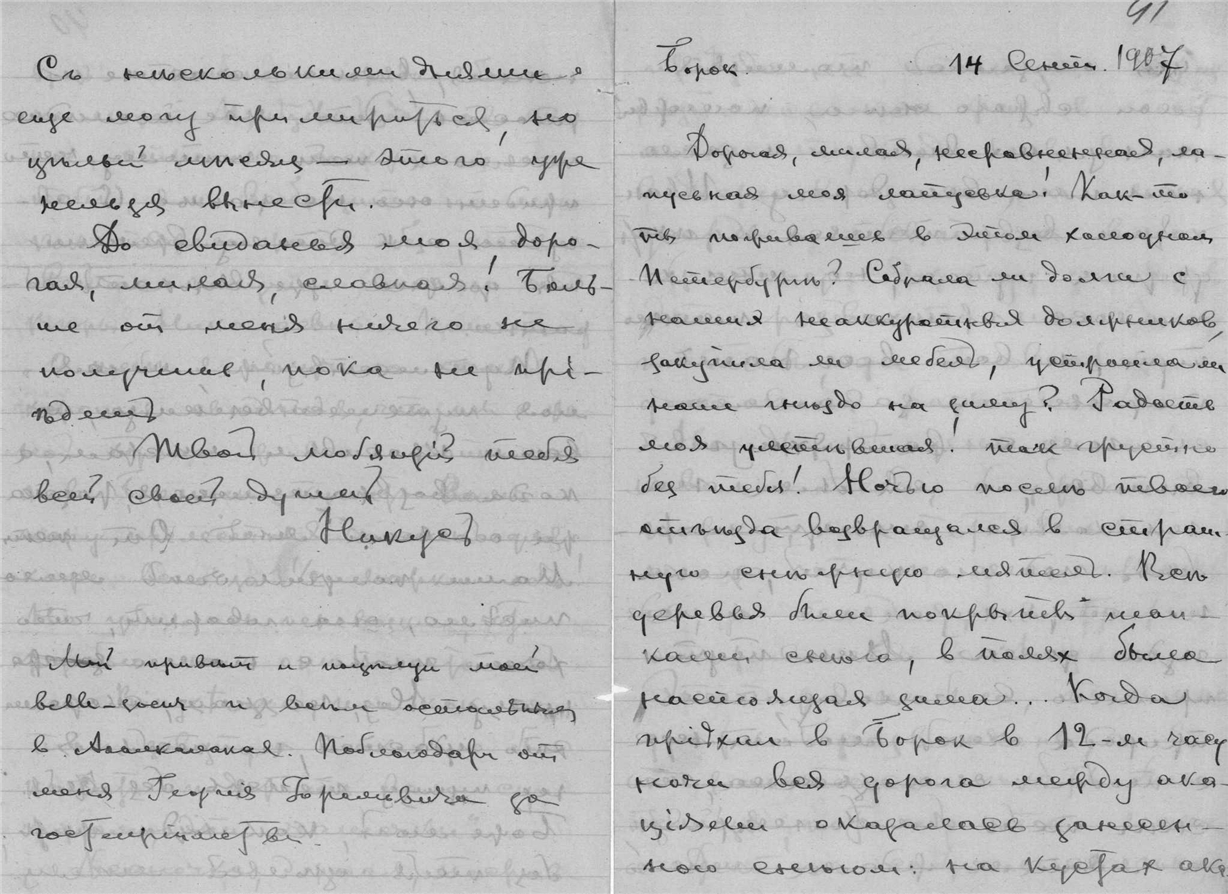 Съ нѣсколькими днями
еще могу примириться, но
цѣлый мѣсяц — этого уже
нельзя вынести.
До свиданья моя доро-
гая, милая, славная! Боль-
ше от меня ничего не
получишь, пока не прі-
ѣдешь
Твой любящій тебя
всей своей душой
Никусь
Мой привѣт и поцѣлуи моей
belle-soeur и всѣм остальным
в. Поблагодари от
меня Георгія за
гостепріимство.
41
Борок. 14 Сент. 1907
Дорогая, милая, несравненная, ла-
моя! Как-то
ты поживаешь в этом холодном
Петербургѣ? Собрала ли долги с
наших неаккуратных должников,
закупила ли мебель, устроила ли
наше гнѣздо на зиму? Радость
моя улетѣвшая! так грустно
без тебя! Ночью послѣ твоего
отъѣзда возвращался в страш-
ную снѣжную мятель. Всѣ
деревья были покрыты шап-
ками снѣга, в полях была
настоящая зима... Когда
пріѣхал в Борок в 12-м часу
ночи вся дорога между ака
ціями оказалась занесен-
ною снѣгом: на кустах ака